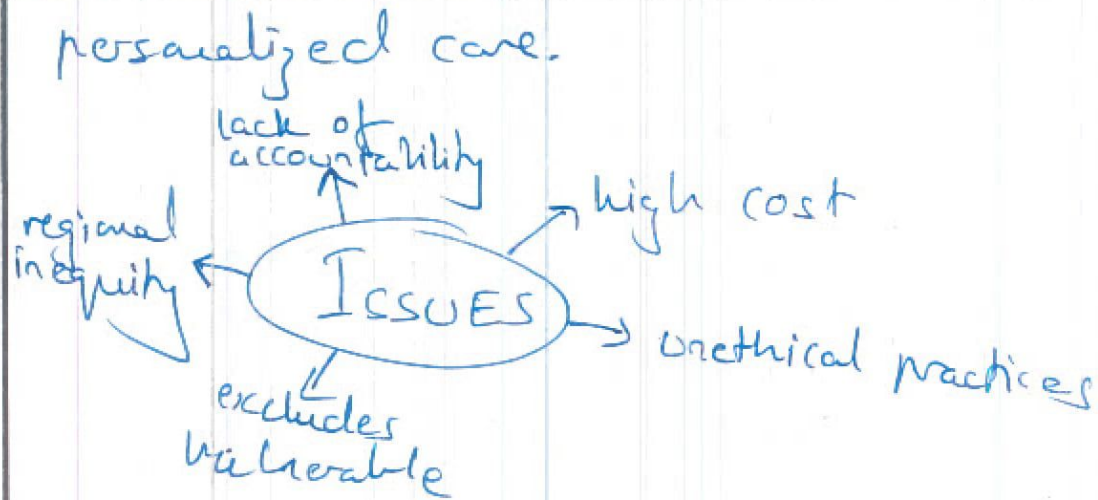 personalized care.
lack of
accountability
high cost
regional
inequity
ISSUES
unethical practices
excludes
vulnerable